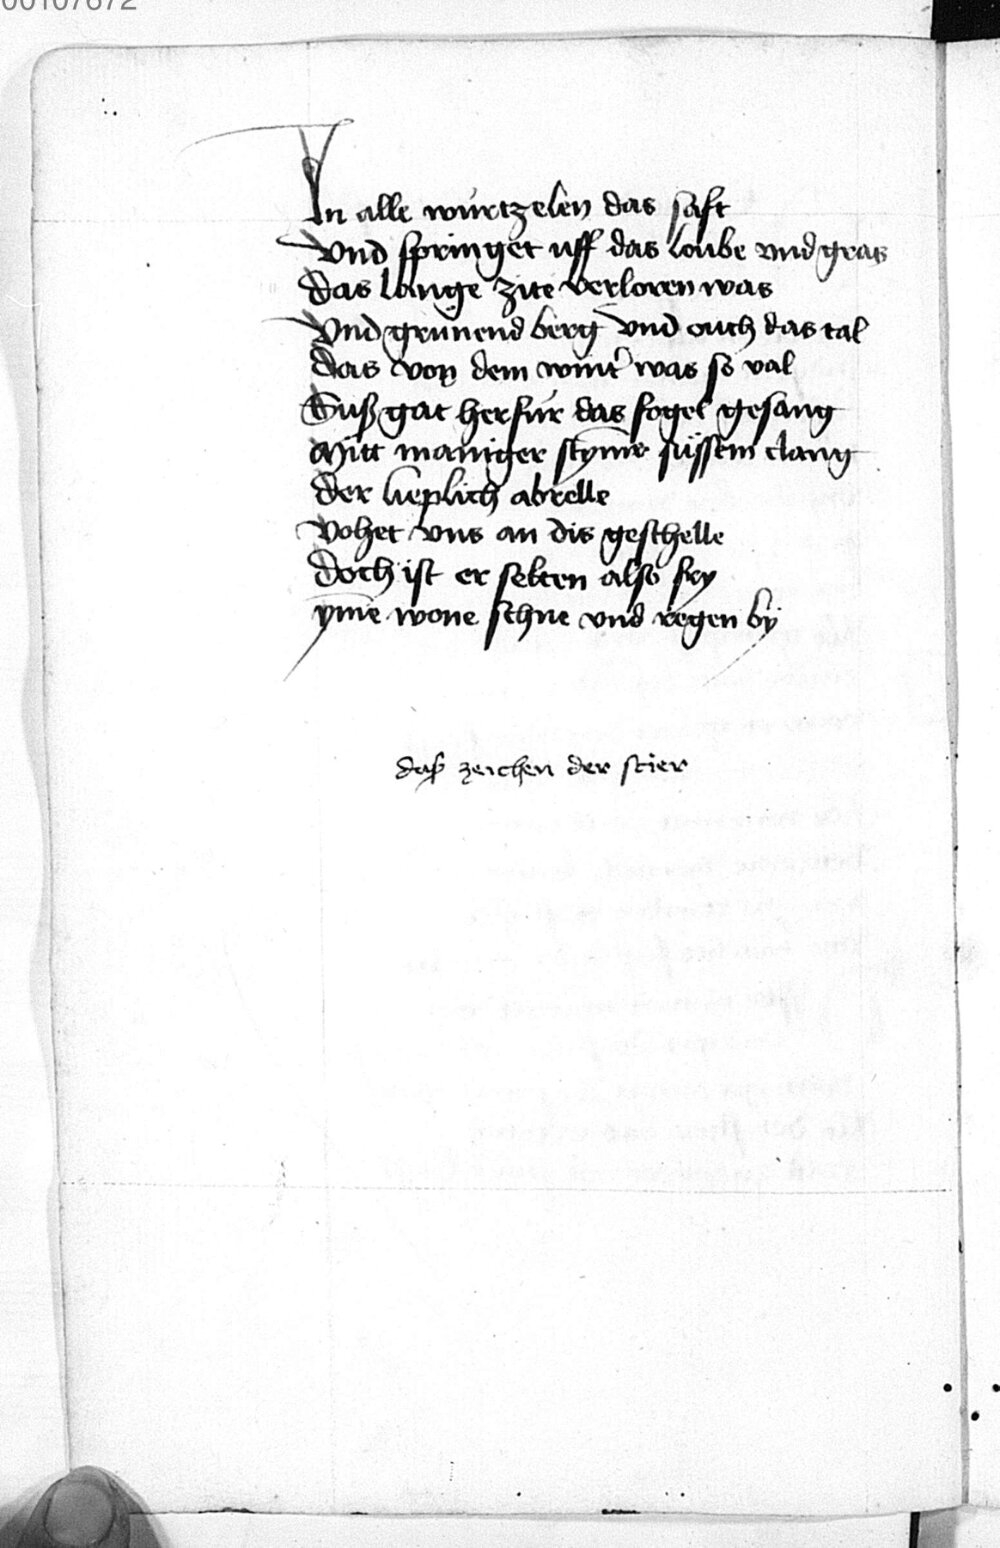 00107672
In alle wurtzelen das saft
Vnd springet uff das loube vnd gras
Das lange zite verloren was
Vnd grunend berg vnd ouch das tal
Das von dem wint' was so val
Suß gat herfúr das fogel gesang
Mitt maniger styme süssem clang
Der lieplich abrelle
Vohet vns an dis geschelle
Doch ist er selten also fry
yme wone schne vnd regen by
daß zeichen der stier